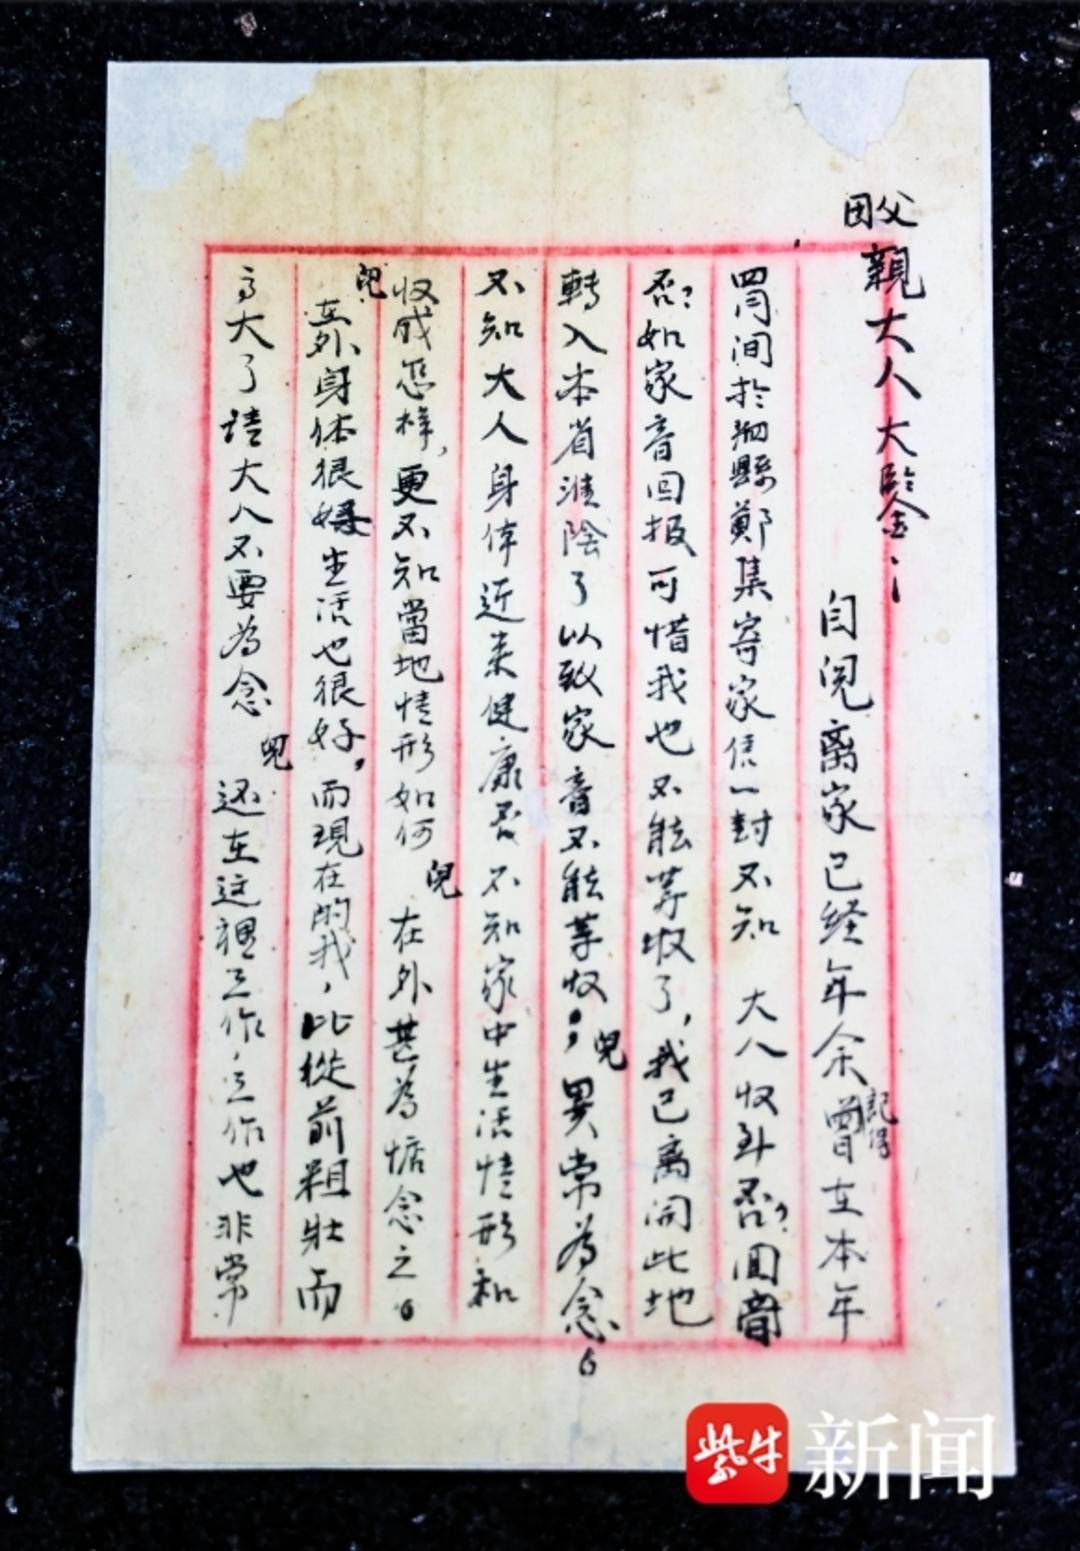 父
親大人大鑒：
自児离家已经年余記得曾在本年
四月间於泗縣鄭集寄家信一封不知 大人收到否？回音
否？如家音回报可惜我也不能等收了，我已离開此地
轉入本省淮陰了以致家音不能等收；兒異常為念。
不知大人身体近来健康否不知家中生活情形和
收成怎样，更不知當地情形如何 兒在外甚為惦念之。
兒在外身体很好生活也很好，而現在的我，比從前粗壯而
高大了請大人不要為念 兒还在这裡工作，工作也非常
紫牛新闻